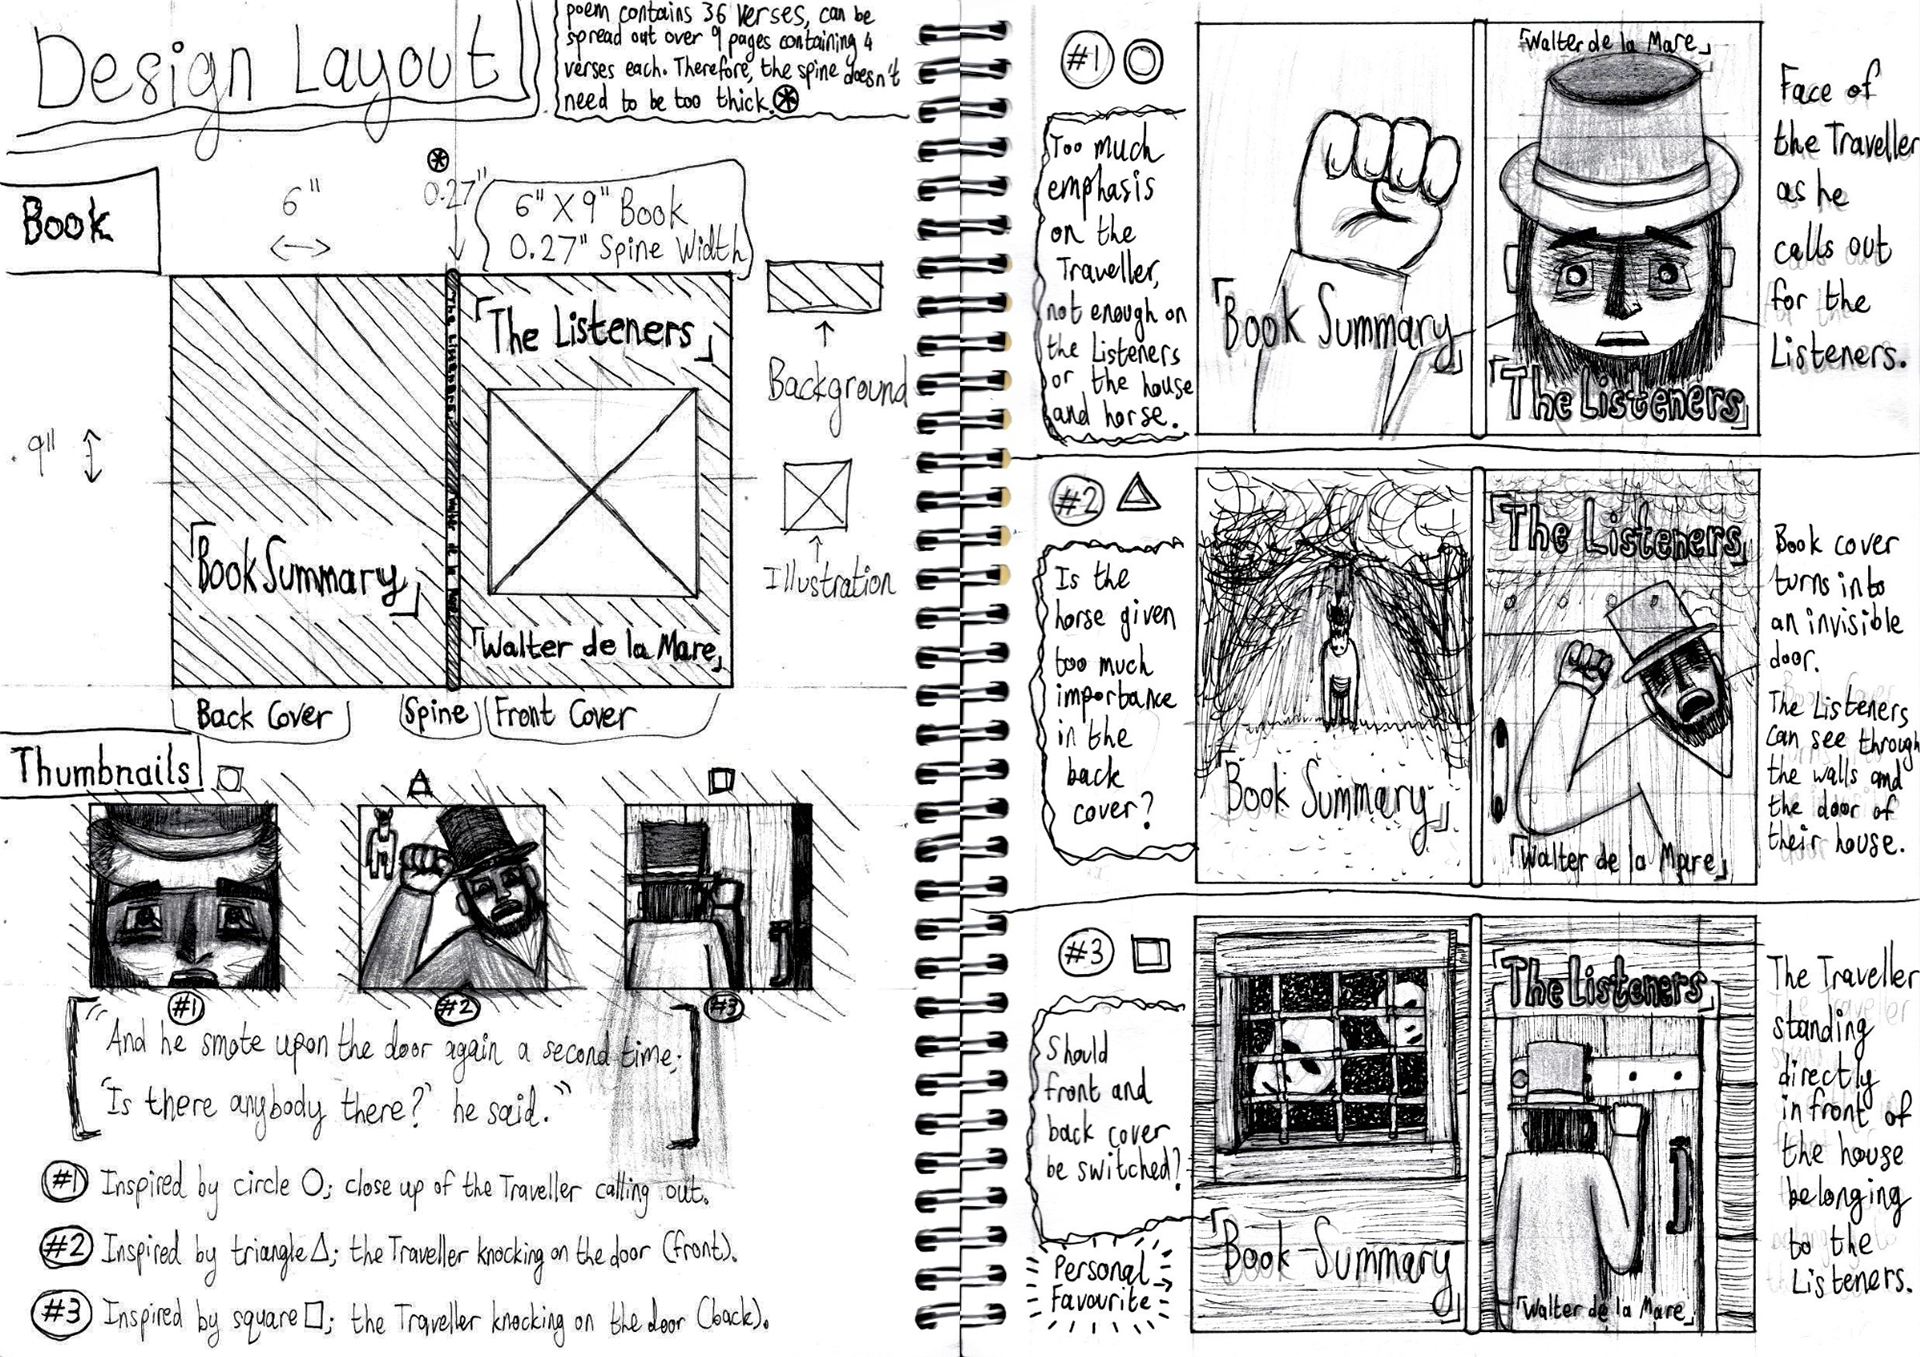 Design Layout
poem contains 36 verses, can be
spread out over 9 pages containing 4
verses each. Therefore, the spine doesn't
need to be too thick.
Book
6"
0.27"
6" X 9" Book
0.27" Spine Width
9"
The Listeners
「The Listeners」
「Book Summary」
「Walter de la Mare」
Background
Illustration
Back Cover
Spine
Front Cover
Thumbnails
#1
#2
#3
"And he smote upon the door again a second time;
'Is there anybody there?' he said."
#1 Inspired by circle O; close up of the Traveller calling out.
#2 Inspired by triangle △; the Traveller knocking on the door (front).
#3 Inspired by square □; the Traveller knocking on the door (back).
#1
Too much
emphasis
on the
Traveller,
not enough on
the Listeners
or the house
and horse.
「Book Summary」
「Walter de la Mare」
「The Listeners」
Face of
the Traveller
as he
calls out
for the
Listeners.
#2
Is the
horse given
too much
importance
in the
back
cover?
「Book Summary」
「The Listeners」
「Walter de la Mare」
Book cover
turns into
an invisible
door.
The Listeners
can see through
the walls and
the door of
their house.
#3
Should
front and
back cover
be switched?
Personal
Favourite
「Book Summary」
「The Listeners」
「Walter de la Mare」
The Traveller
standing
directly
in front of
the house
belonging
to the
Listeners.